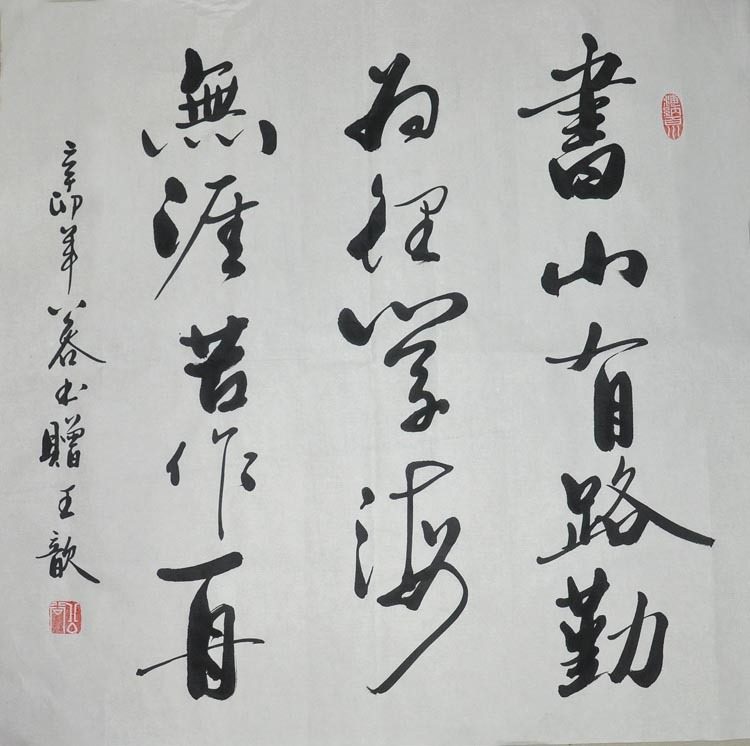 書山有路勤
为徑學海
無涯苦作舟
辛卯年书贈王歆